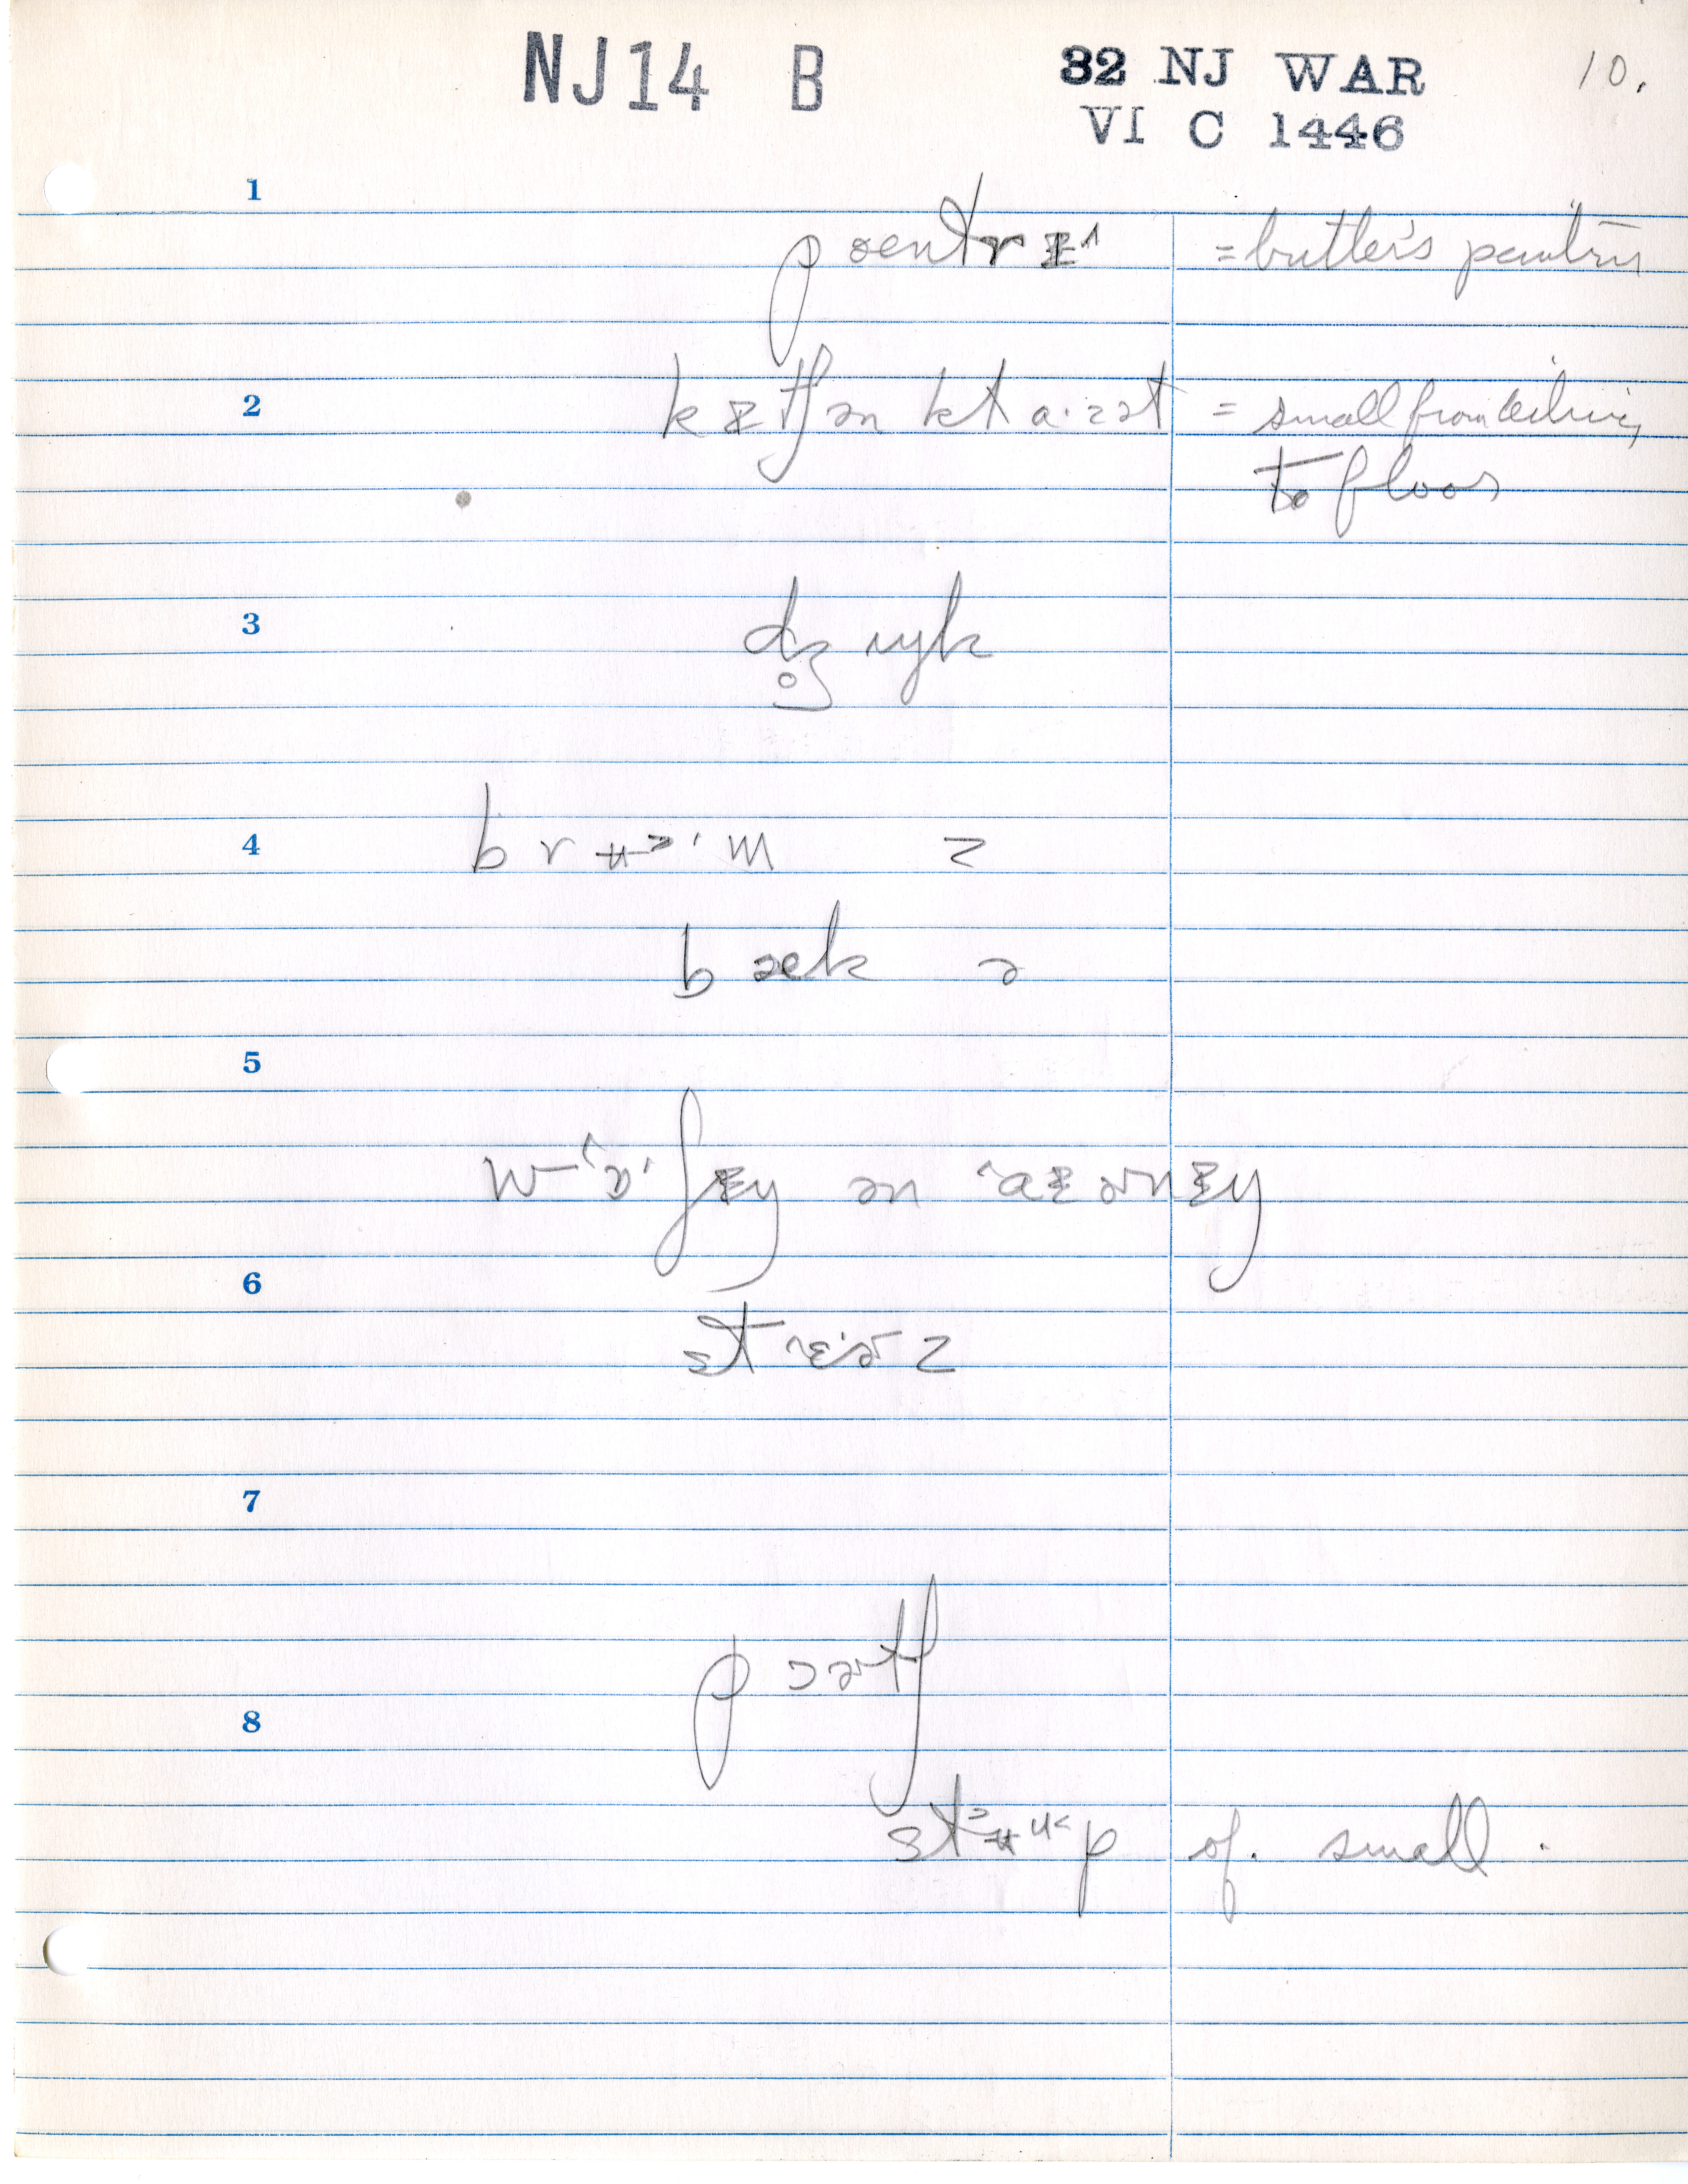 NJ14 B
32 NJ WAR
VI C 1446
10.
1
pæntrɪ^ = butler's pantry
2
kɪtʃən klɑ·zət = small from ceiling
to floor
3
dʒʌŋk
4
brʉᵊ'm z
bæk ə
5
wɒ'ʃɪŋ ən ˈaɪɚnɪŋ
6
stɛɚz
7
pɔɚtʃ
8
of. small.